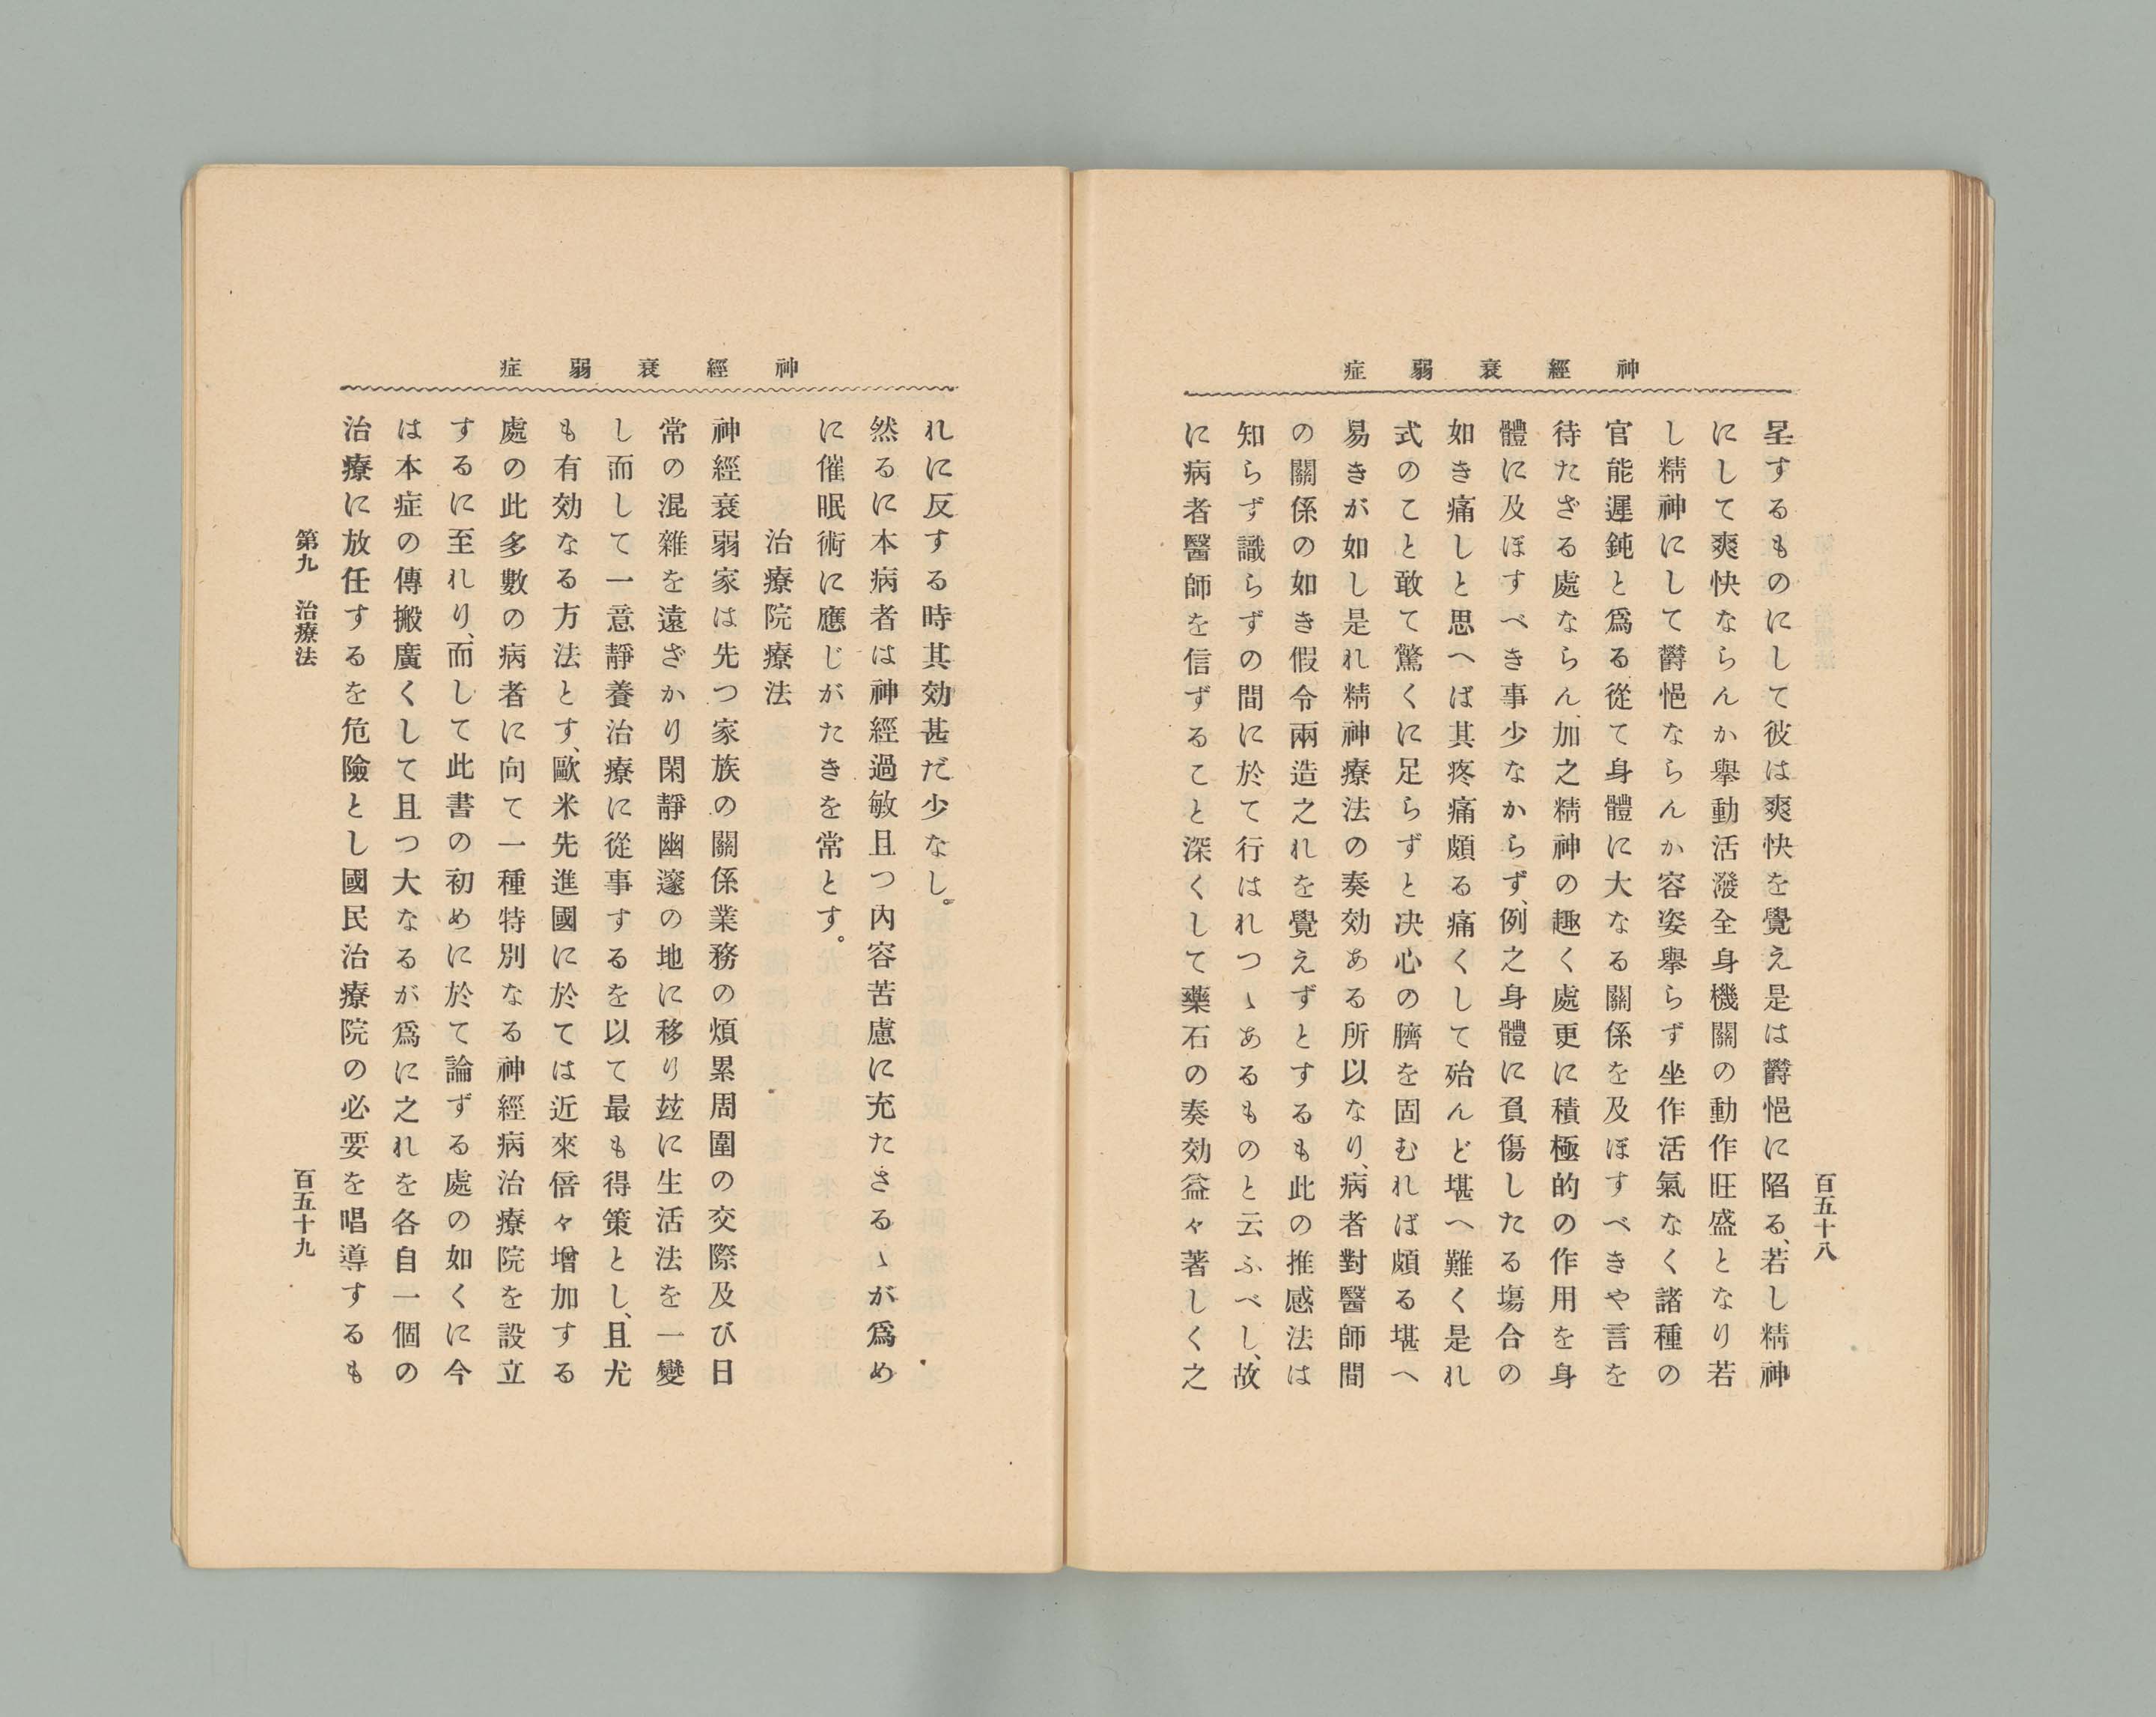 神經衰弱症
百五十八
呈するものにして彼は爽快を覺え是は欝悒に陷る、若し精神
にして爽快ならんか擧動活潑全身機關の動作旺盛となり若
し精神にして欝悒ならんか容姿擧らず坐作活氣なく諸種の
官能遲鈍と爲る從て身體に大なる關係を及ほすべきや言を
待たざる處ならん、加之精神の趣く處更に積極的の作用を身
體に及ほすべき事少なからず、例之身體に負傷したる塲合の
如き痛しと思へば其疼痛頗る痛くして殆んど堪へ難く是れ
式のこと敢て驚くに足らずと决心の臍を固むれば頗る堪へ
易きが如し是れ精神療法の奏効ある所以なり、病者對醫師間
の關係の如き假令兩造之れを覺えずとするも此の推感法は
知らず識らずの間に於て行はれつゝあるものと云ふべし、故
に病者醫師を信ずること深くして藥石の奏効益々著しく之
神經衰弱症
れに反する時其効甚だ少なし。
然るに本病者は神經過敏且つ內容苦慮に充たさるゝが爲め
に催眠術に應じがたきを常とす。
治療院療法
神經衰弱家は先つ家族の關係業務の煩累周圍の交際及び日
常の混雜を遠ざかり閑靜幽邃の地に移り玆に生活法を一變
し而して一意靜養治療に從事するを以て最も得策とし、且尤
も有効なる方法とす、歐米先進國に於ては近來倍々增加する
處の此多數の病者に向て一種特別なる神經病治療院を設立
するに至れり、而して此書の初めに於て論ずる處の如くに今
は本症の傳搬廣くして且つ大なるが爲に之れを各自一個の
治療に放任するを危險とし國民治療院の必要を唱導するも
第九　治療法
百五十九